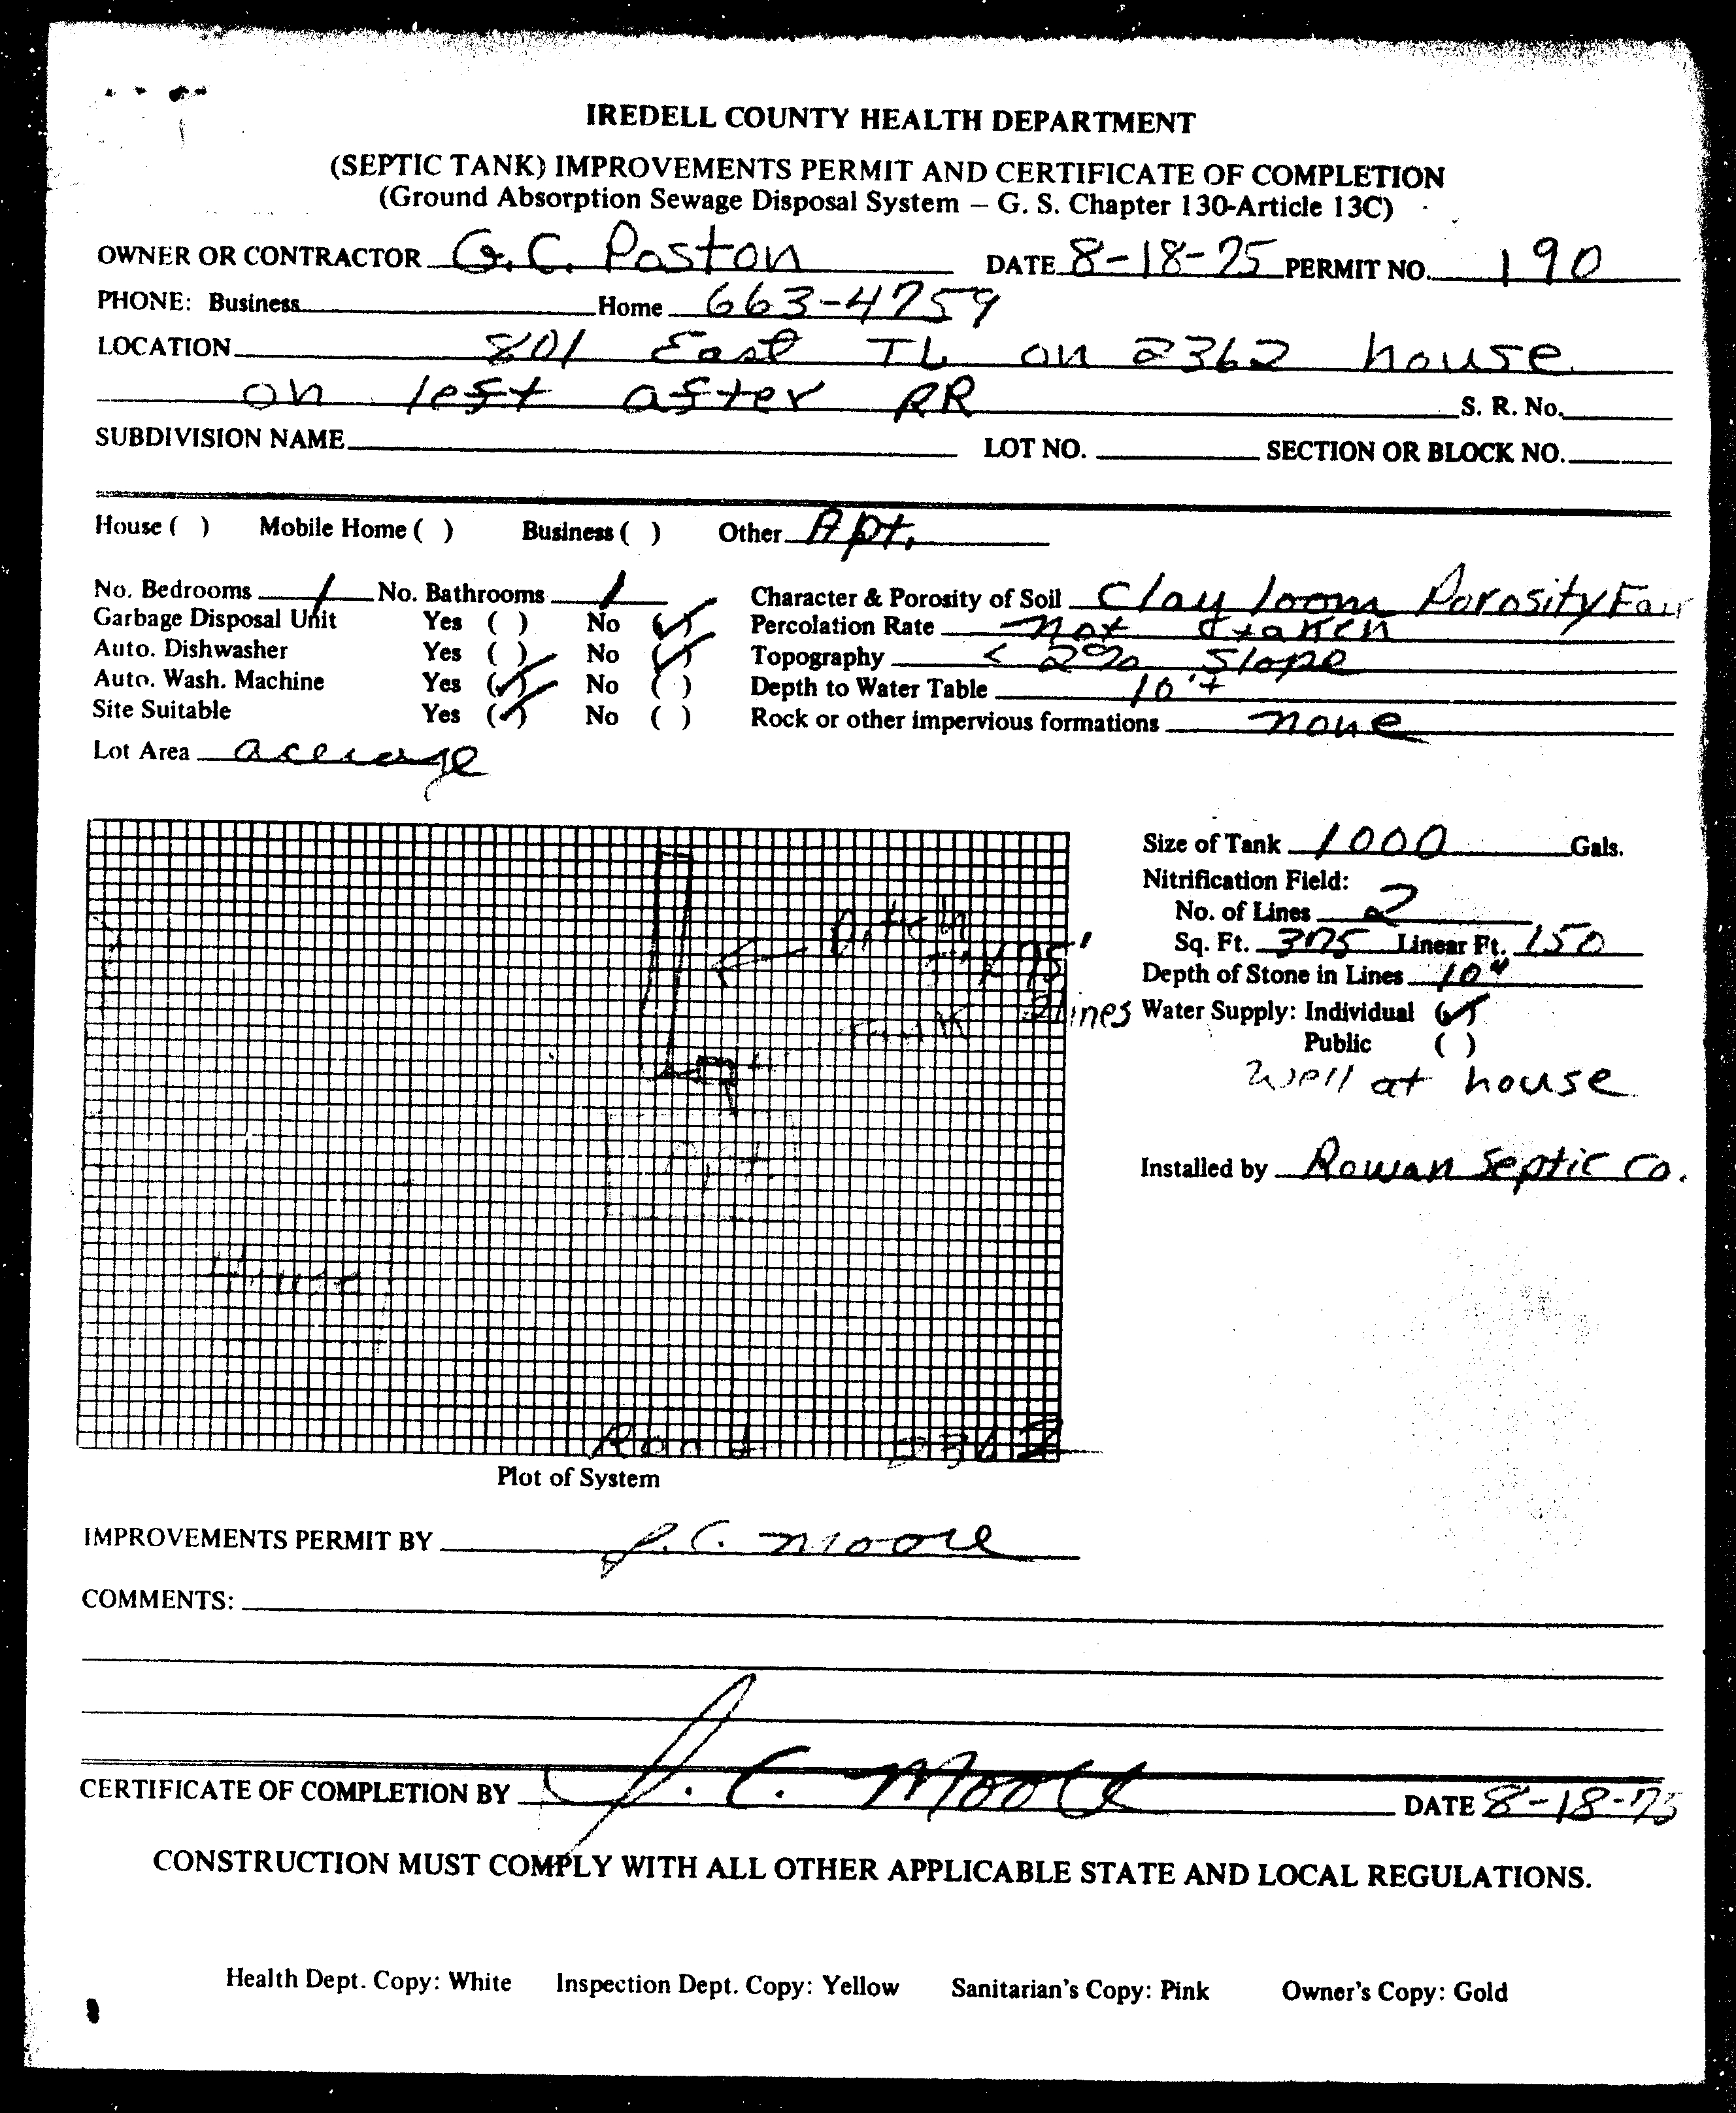 IREDELL COUNTY HEALTH DEPARTMENT
(SEPTIC TANK) IMPROVEMENTS PERMIT AND CERTIFICATE OF COMPLETION
(Ground Absorption Sewage Disposal System – G. S. Chapter 130-Article 13C)
OWNER OR CONTRACTOR G. C. Poston DATE 8-18-75 PERMIT NO. 190
PHONE: Business Home 663-4759
LOCATION 801 East TL on 2362 house
on left after RR S. R. No.
SUBDIVISION NAME LOT NO. SECTION OR BLOCK NO.
House ( ) Mobile Home ( ) Business ( ) Other Apt.
No. Bedrooms 1 No. Bathrooms 1 Character & Porosity of Soil Clay loom Porosity Fair
Garbage Disposal Unit Yes ( ) No (✓) Percolation Rate not taken
Auto. Dishwasher Yes ( ) No (✓) Topography < 2% Slope
Auto. Wash. Machine Yes (✓) No ( ) Depth to Water Table 10'+
Site Suitable Yes (✓) No ( ) Rock or other impervious formations none
Lot Area acerage
Size of Tank 1000 Gals.
Nitrification Field:
No. of Lines 2
Sq. Ft. 375 Linear Ft. 150
Depth of Stone in Lines 10"
Water Supply: Individual (✓)
Public ( )
well at house
Installed by Rowan Septic Co.
Ditch
75'
2 lines
Tank
Apt
House
Road 2362
Plot of System
IMPROVEMENTS PERMIT BY J. C. Moore
COMMENTS:
CERTIFICATE OF COMPLETION BY J. C. Moore DATE 8-18-75
CONSTRUCTION MUST COMPLY WITH ALL OTHER APPLICABLE STATE AND LOCAL REGULATIONS.
Health Dept. Copy: White Inspection Dept. Copy: Yellow Sanitarian's Copy: Pink Owner's Copy: Gold